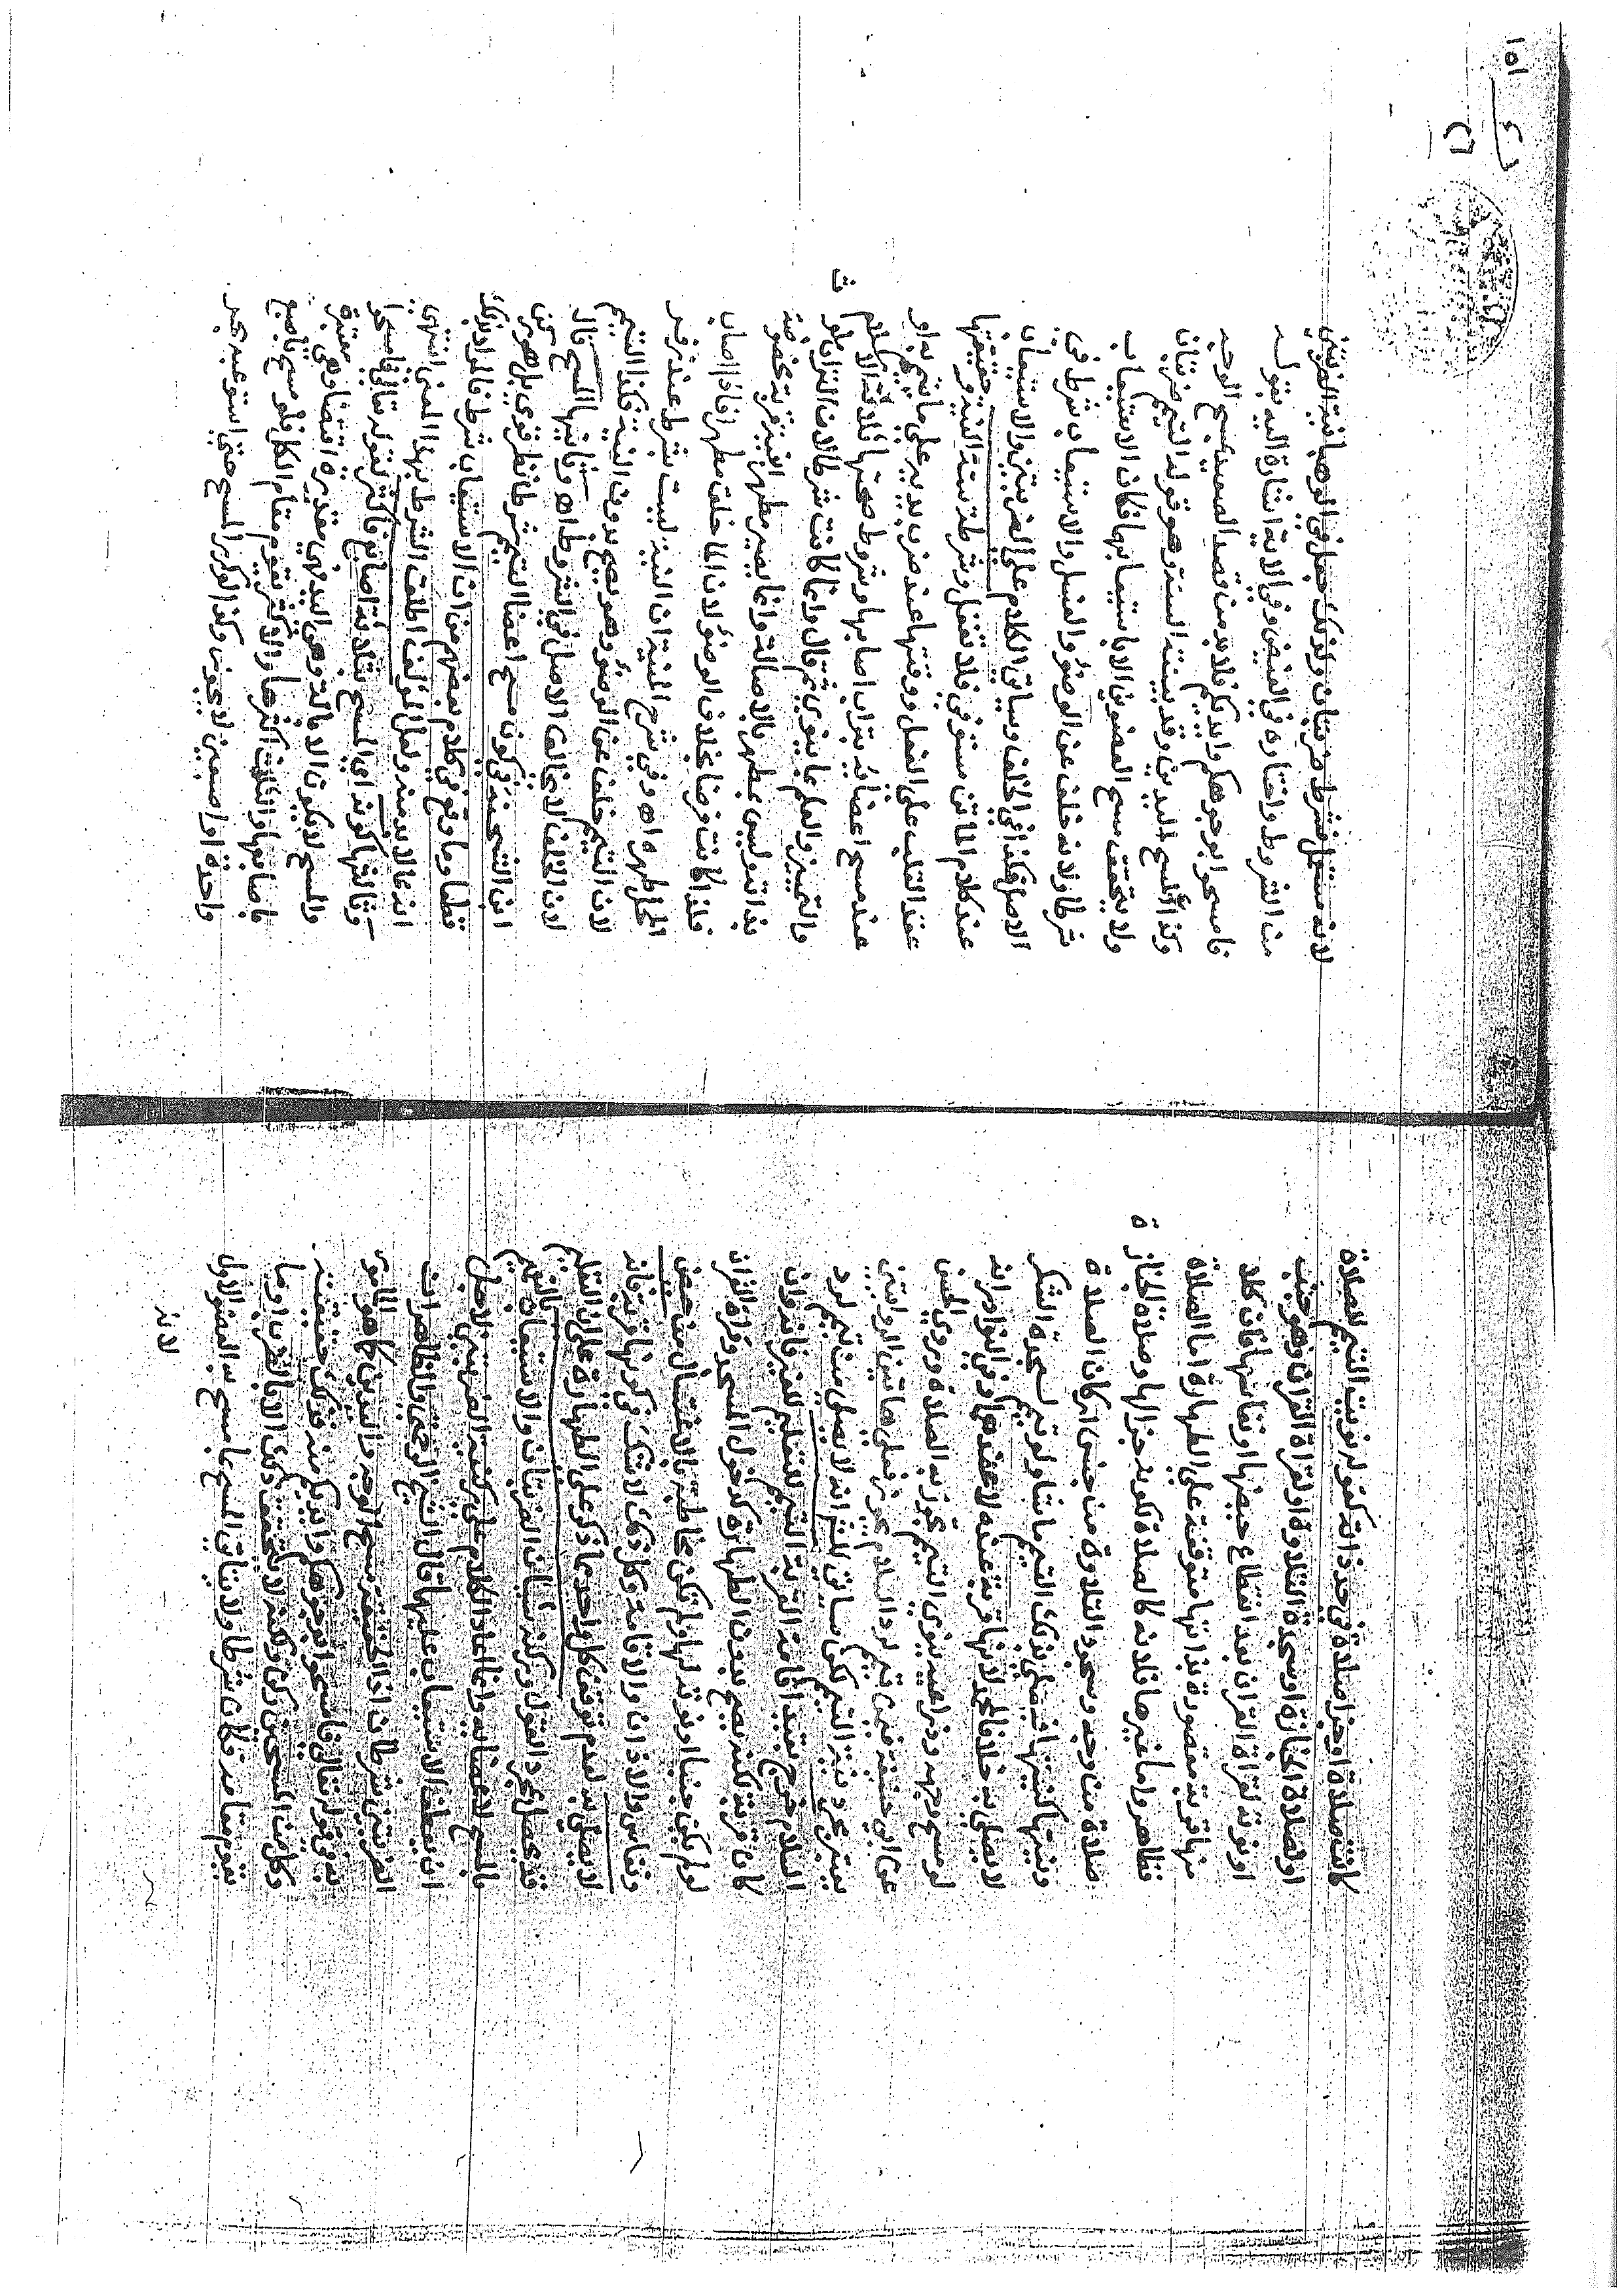 كانت صلاة او جزا صلاة في حد ذاته كقوله نويت التيمم للصلاة
او لصلاة الجنازة او سجدة التلاوة او لقراة القران وهو جنب
او نوته لقراة القران بعد انقطاع حيضها او نفاسها فان كلا
منها قربة مقصودة بذاتها متوقفة على الطهارة اما الصلاة
فظاهر واما غيرها فلانه كالصلاة كونه جزا لها وصلاة الجنازة
صلاة من وجه وسجود التلاوة من جنس اركان الصلاة
ونيتها كنيتها فيصلي بذلك التيمم ما شا ولو تيمم لسجدة الشكر
لا يصلي به خلافا لمحمد لانها قربة عنده لا عندهما وفي النوادر انه
لو مسح وجهه وذراعيه ينوي التيمم تجوز به الصلاة وروى الحسن
عن ابي حنيفة فيمن تيمم لرد السلام يجوز فعلى هاتين الروايتين
يعتبر مجرد نية التيمم لكن سياتي المتن انه لا يصلي من تيمم لرد
السلام خرج بقيد اقامة القربة التيمم لتعليم الغير فانه وان
كان قربة لكنه يصح بدون الطهارة كدخول المسجد وقراة القران
لو لم يكن جنبا او نوته لها ولم تكن مخاطبة بالاغتسال من حيض
ونفاس والاذان والاقامة وكل ذلك لا شك في كونها قربة فانه
لا يصلي به لعدم توقف كل واحد مما ذكر على الطهارة على ان التعليم
قد يحصل بمجرد القول وركنه شيآن الضربتان والاستيعاب
بالمسح لاعضايه وانما اعاد الكلام على ركنية الضربتين لاجل
ان يعطف الاستيعاب عليها قال الشيخ الرحمتي والظاهر ان
الضربتين شرطان اذ الحقيقة مسح الوجه واليدين كما هو المامور
به في قوله تعالى فامسحوا بوجوهكم وايديكم منه فذلك حقيقته
وكل من المسحتين ركن ولكنه لا يتحقق ذلك الا بالضرب او ما
يقوم مقامه فكان شرطا ولا ينافي المسح بما مسح به العضو الاول
لانه
١٥١
لانه مستقل فشرط ضربتان ولذلك جعل في الوهبانية الضربتين
من الشروط واختاره في الفيض وفي الاية اشارة اليه بقوله
فامسحوا بوجوهكم وايديكم فلا بد من قصد الصعيد لمسح الوجه
وكذا لمسح اليدين وقد بينته السنة وهو قوله التيمم ضربتان
ولا يتحقق مسح العضوين الا باستيعابهما فكان الاستيعاب
شرطا ولانه خلف عن الوضوء والغسل والاستيعاب شرط في
الاصل فكذا في الخلف وسياتي الكلام على الضربتين والاستيعاب
عند كلام الماتن مستوفي فلا تغفل وشرطه ستة النية وحقيقتها
عقد القلب على الفعل ووقتها عند ضرب يديه على ما تيمم به او
عند مسح اعضايه بتراب اصابها وشروط صحتها ثلاثة الاسلام
والتمييز والعلم بما ينوي ثم قال وانما كانت شرطا لان التراب ملوث
بذاته وليس بمطهر بالاصالة وانما يصير مطهرا بنية قربة مخصوصة
فلذا كانت فرضا بخلاف الوضوء لان الما خلق مطهرا فاذا اصاب
المحل طهره اه وفي شرح المنية ان النية ليست بشرط عند زفر
لان التيمم خلف عن الوضوء وهو يصح بدون النية فكذا التيمم
لان الخلف لا يخالف الاصل في الشروط اه وثانيها المسح قال
ابن الشحنة في كون مسح اعضا التيمم شرطا نظر قوي بل هو ركن
قطعا وما وقع في كلام بعضهم من ان الاستيعاب شرط فالمراد بذلك
انه مما لا بد منه ولعل المؤلف اطلق الشرط بهذا المعنى انتهى
وثالثها كونه اي المسح بثلاثة اصابع فاكثر لقوله تعالى فامسحوا
والمسح لا يكون الا بآلة وهي اليد فهي مقدرة اقتضا وهي معتبرة
باصابعها والثلث اكثرها والاكثر يقوم مقام الكل فلو مسح باصبع
واحدة او اصبعين لا يجوز ولو كرر المسح حتى استوعب